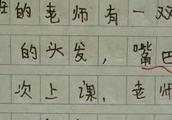 的老师有一双
的头发，嘴巴
次上课，老师